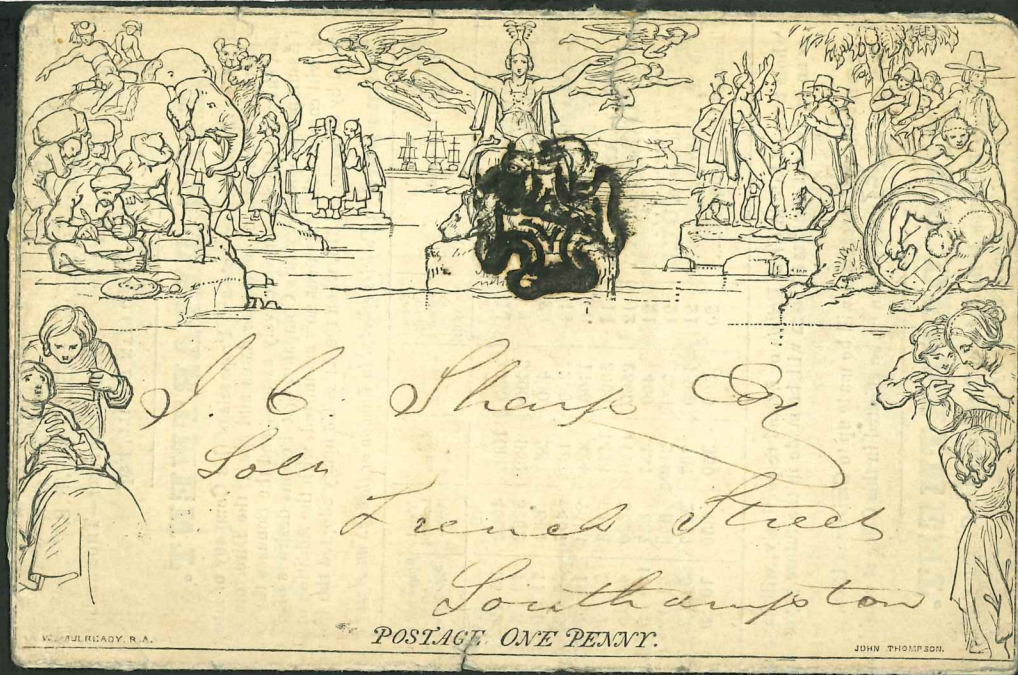 J. C. Sharp Esq
Solr
French Street
Southampton
W. MULREADY. R.A.
POSTAGE ONE PENNY.
JOHN THOMPSON.